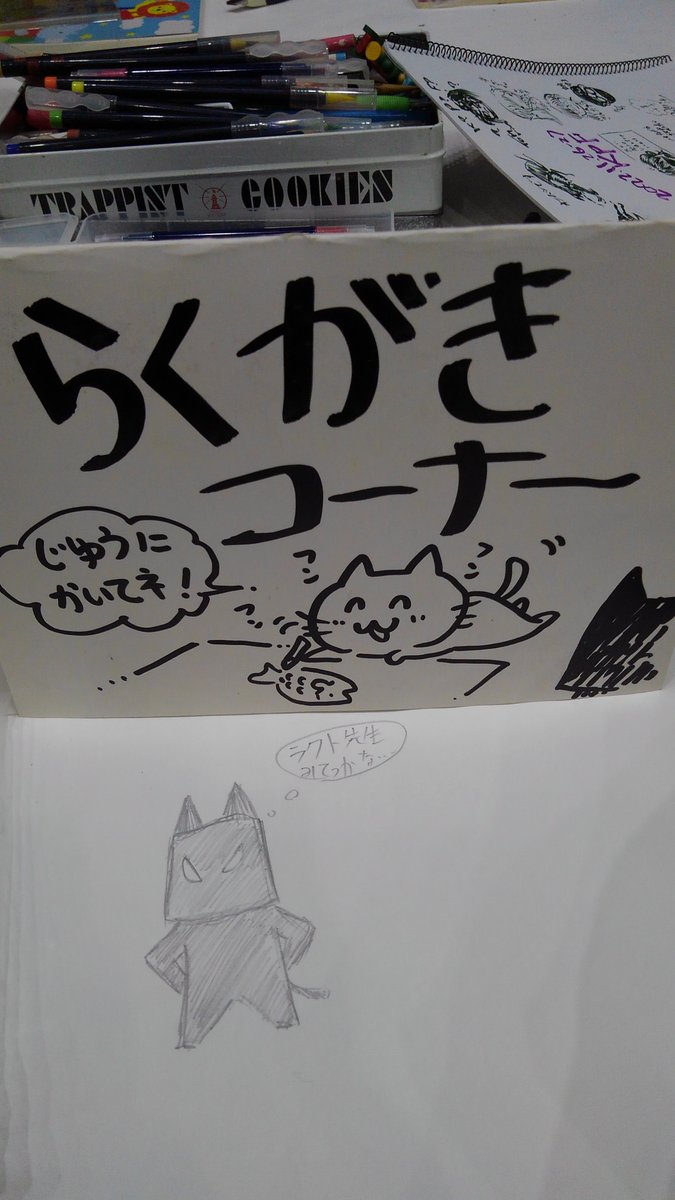 TRAPPIST COOKiES
らくがき
コーナー
じゆうに
かいてネ!
ラクト先生
みてっかな…